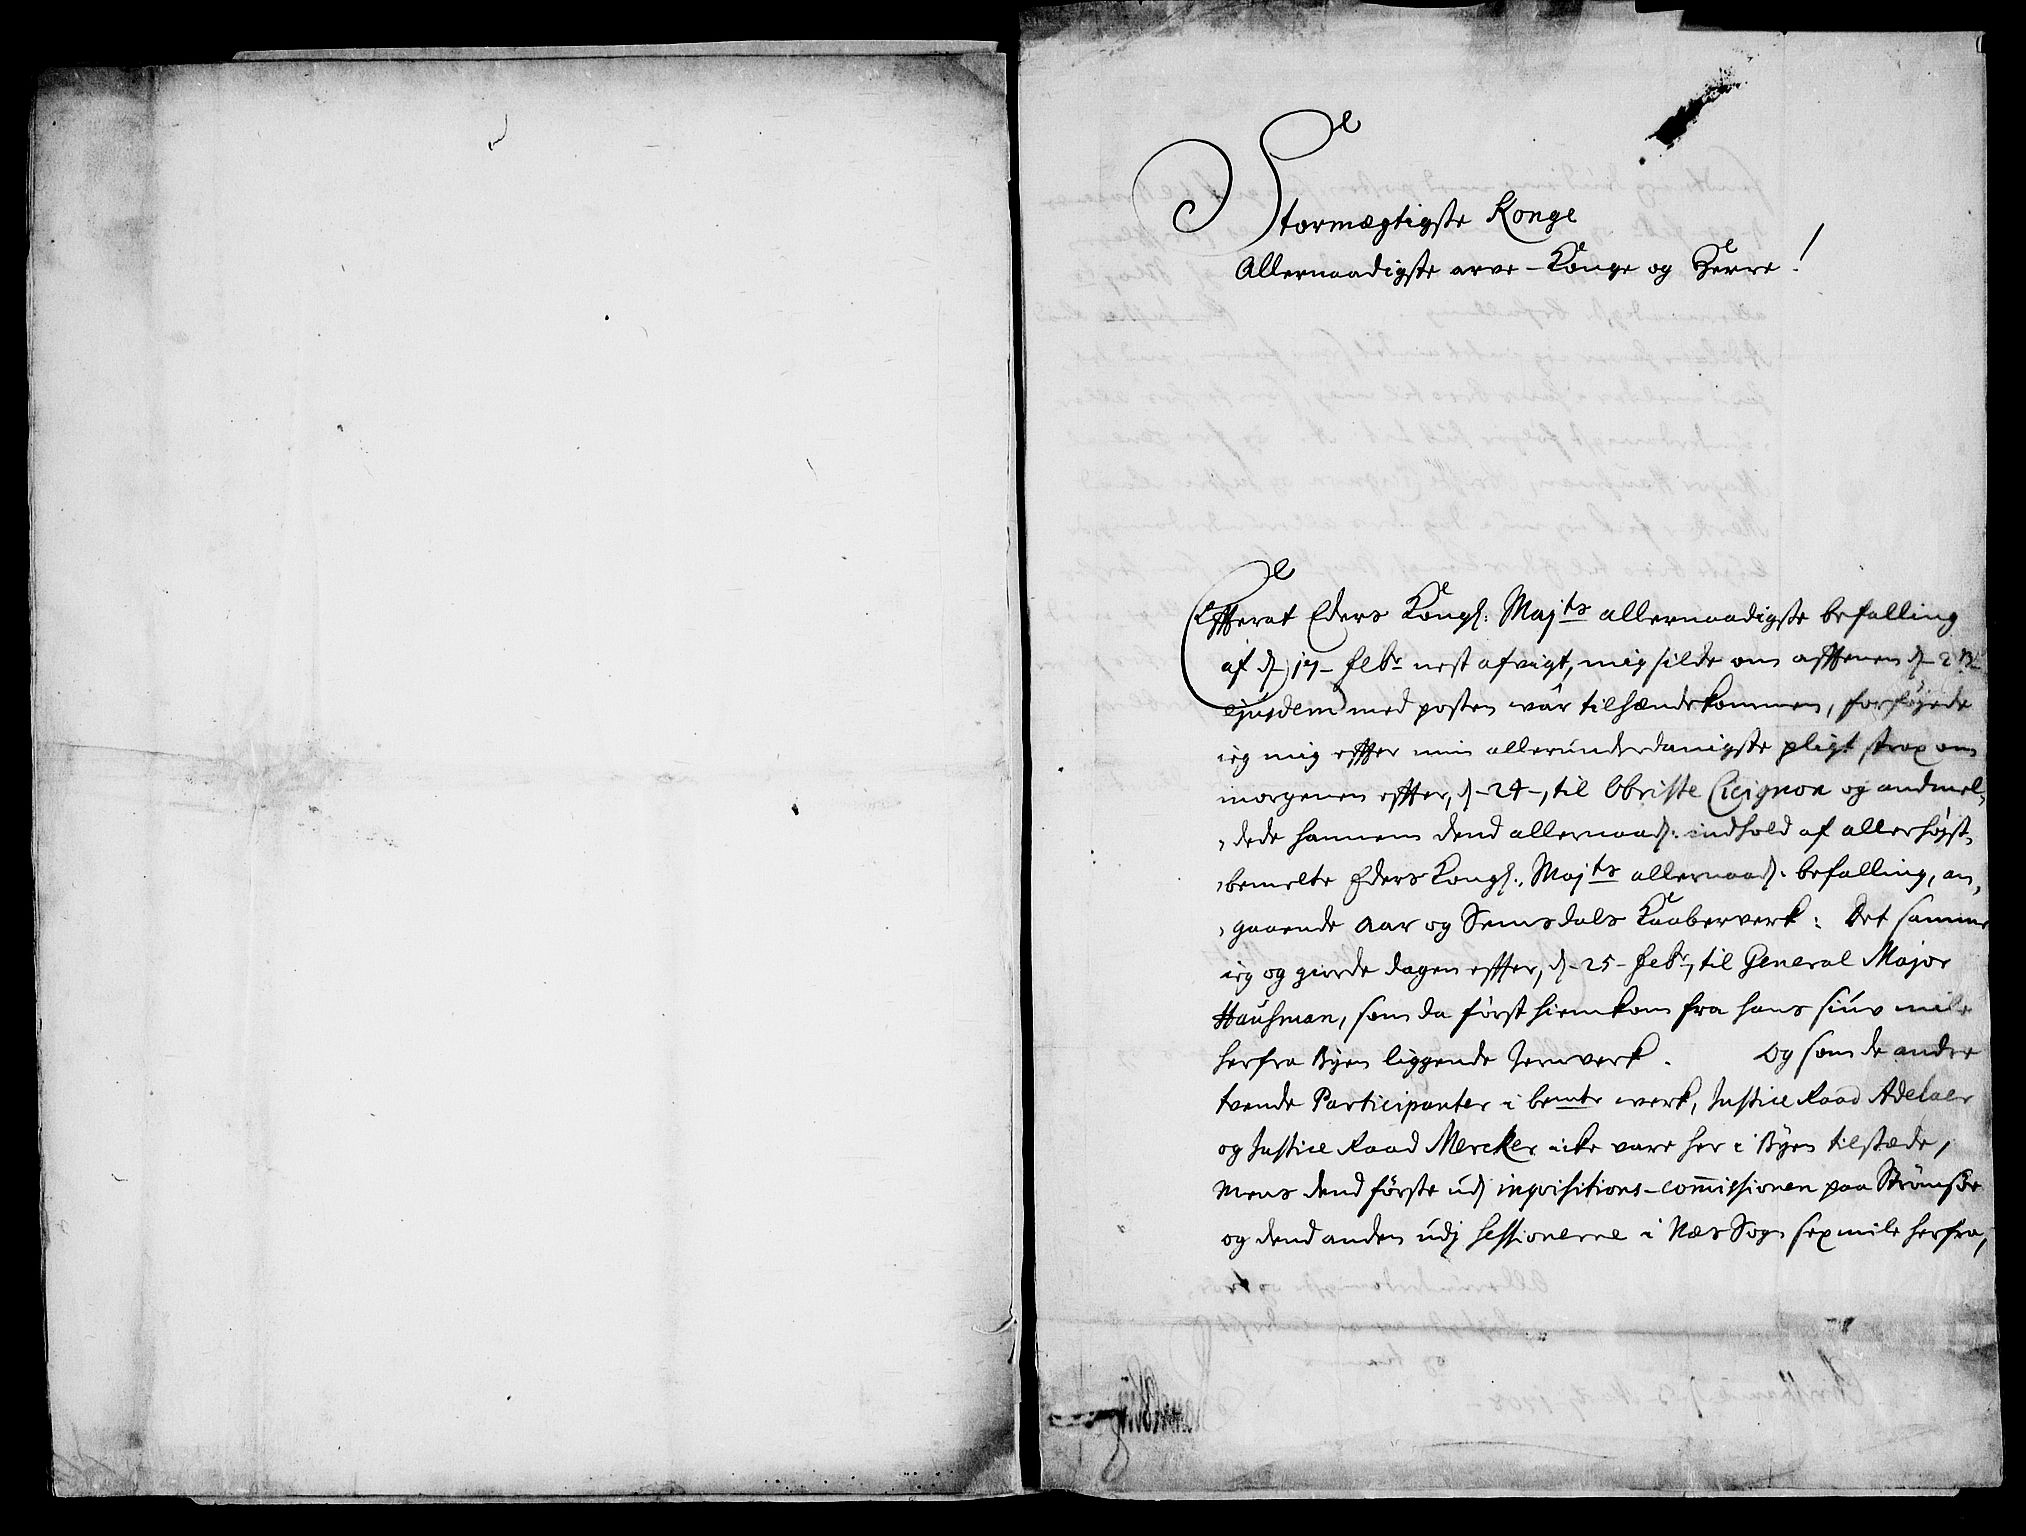 Stormægtigste Konge
Allernaadigste arve-Konge og Herre!
Effterat Eders Kongl: Majts allernaadigste befalling
af d. 17 Febr nest afvigt, mig silde om afftenen d. 23
ejusdem med posten wâr tilhændekommen, forføyede
ieg mig effter min allerunderdanigste pligt strax om
morgenen effter, d. 24, til Obriste Cicignon og andmel,
,dede hannem dend allernaad: indhold af allerhøyst,
,bemelte Eders Kongl: Majts allernaad: befalling, an,
,gaaende Aar og Semsdals Kaaberverk: Det samme
ieg og giorde dagen effter, d. 25 Febr, til General Major
Hausman, som da først hiemkom fra hans siuv mile
herfra Byen liggende Jernverk. Og som de andre
tvende Participanter i bemte werk, Justice Raad Adelaer
og Justice Raad Mercker icke vare her i Byen tilstæde,
Mens dend første udj inqvisitions-commissionen paa Strömsöe
og dend anden udj Sessionerne i Næs Sogn sex mile herfra,